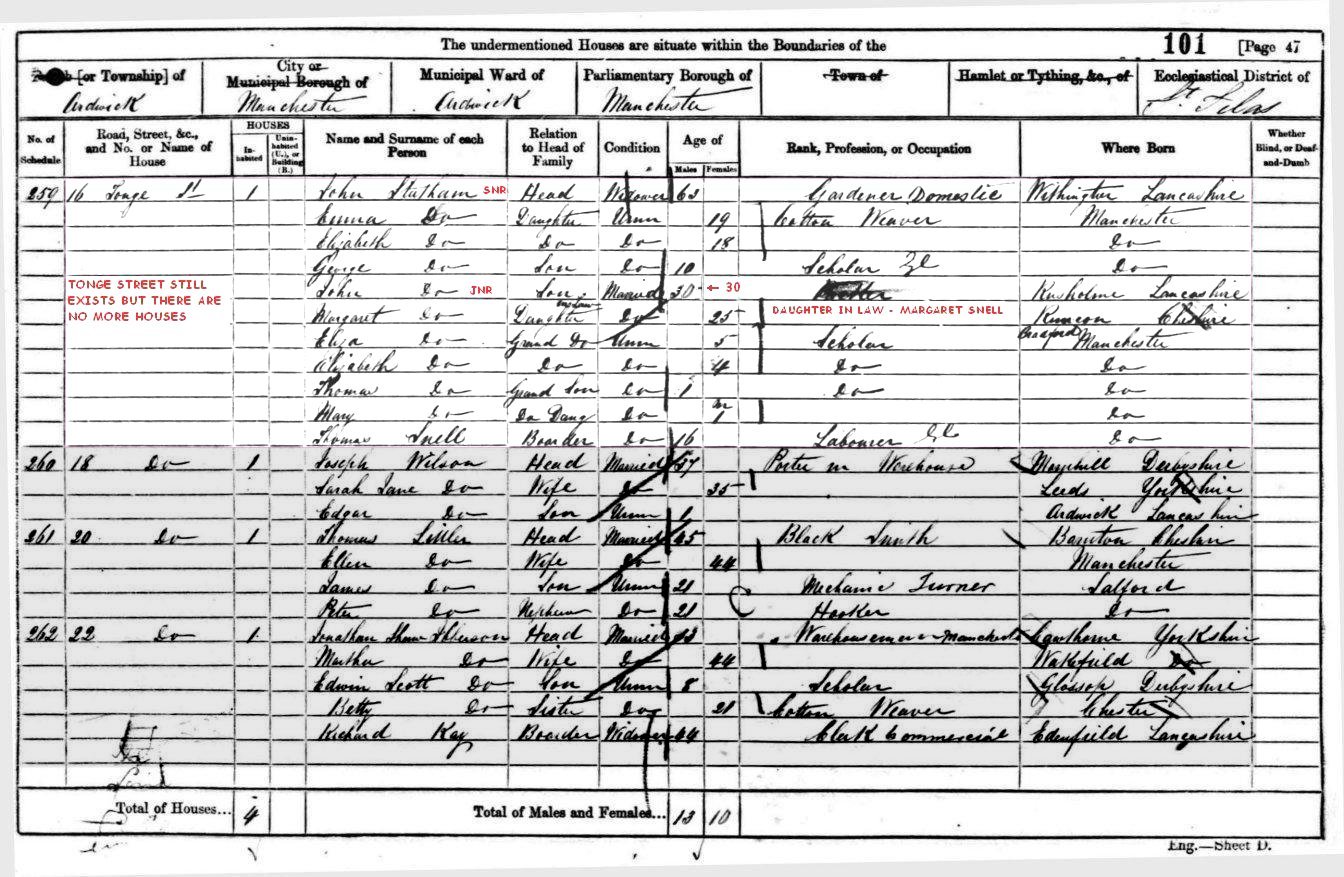 The undermentioned Houses are situate within the Boundaries of the 101 [Page 47
[or Township] of City or Municipal Borough of Municipal Ward of Parliamentary Borough of Town of Hamlet or Tything, &c., of Ecclesiastical District of
Ardwick Manchester Ardwick Manchester St. Silas
No. of Schedule Road, Street, &c., and No. or Name of House HOUSES Inhabited Uninhabited (U.), or Building (B.) Name and Surname of each Person Relation to Head of Family Condition Age of Males Females Rank, Profession, or Occupation Where Born Whether Blind, or Deaf-and-Dumb
259 16 Tonge St 1 John Statham SNR Head Widower 63 Gardener Domestic Withington Lancashire
Emma Do Daughter Unm 19 Cotton Weaver Manchester
Elizabeth Do Do Do 18 Do
George Do Son Do 10 Scholar Do
TONGE STREET STILL
EXISTS BUT THERE ARE
NO MORE HOUSES
John Do JNR Son Married 30 ← 30 Rusholme Lancashire
Margaret Do Daughter in Law Do 25 DAUGHTER IN LAW - MARGARET SNELL Runcon Cheshire
Eliza Do Grand Do Unm 5 Scholar Bradford Manchester
Elizabeth Do Do Do 4 Do Do
Thomas Do Grand Son Do 1 Do Do
Mary Do Do Daug Do m 1 Do
Thomas Snell Boarder Do 16 Labourer Do
260 18 Do 1 Joseph Wilson Head Married 37 Porter in Warehouse Derbyshire
Sarah Jane Do Wife Do 35 Leeds Yorkshire
Edgar Do Son Unm 1 Ardwick Lancashire
261 20 Do 1 Thomas Head Married 45 Black Smith Cheshire
Ellen Do Wife Do 44 Manchester
James Do Son Unm 21 Mechanic Turner Salford
Peter Do Nephew Do 21 Hooker Do
262 22 Do 1 Jonathan Shaw Head Married 43 Cawthorne Yorkshire
Martha Do Wife Do 44 Wakefield Do
Edwin Scott Do Son Unm 8 Scholar Glossop Derbyshire
Betty Do Sister Do 21 Cotton Weaver Chester
Richard Kay Boarder Widower 64 Clerk Commercial Edenfield Lancashire
Total of Houses... 4 Total of Males and Females... 13 10
Eng.—Sheet D.